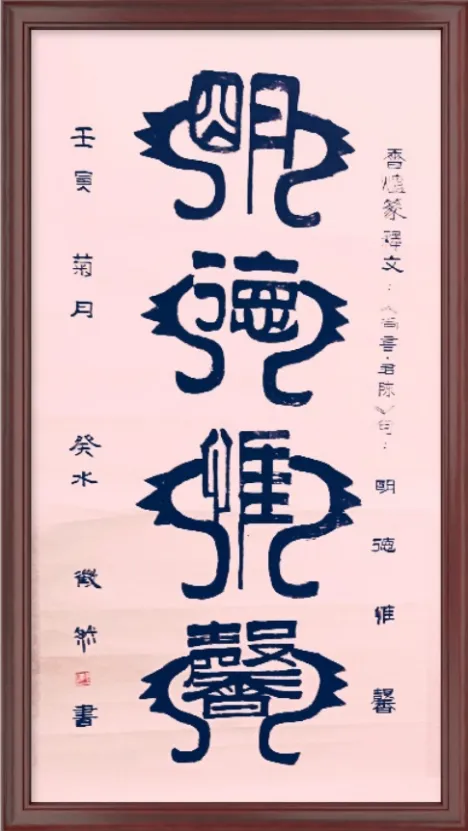 香爐篆釋文：《尚書·君陳》句：明德惟馨
明德惟馨
壬寅 菊月 癸水 然 書